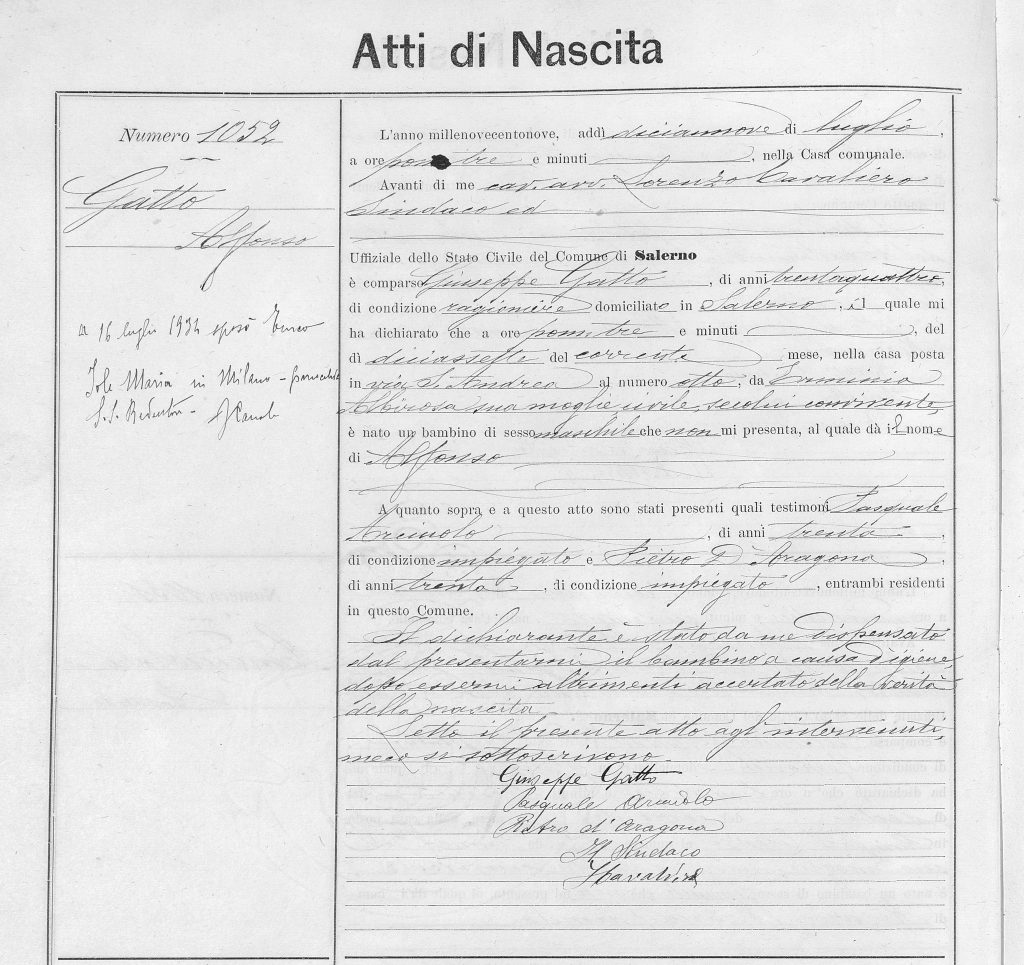 Atti di Nascita
Numero 1052
Gatto
Alfonso
16 luglio 1934 sposò
Jole Maria in Milano -
S.S. Redentore -
L'anno millenovecentonove, addì diciannove di luglio,
a ore pom tre e minuti, nella Casa comunale.
Avanti di me cav. avv. Lorenzo Cavaliero
Sindaco ed
Uffiziale dello Stato Civile del Comune di Salerno
è comparso Giuseppe Gatto, di anni trentaquattro,
di condizione ragioniere domiciliato in Salerno, il quale mi
ha dichiarato che a ore pom tre e minuti, del
dì diciassette del corrente mese, nella casa posta
in via S. Andrea al numero otto, da Erminia
Albirosa sua moglie civile, secolui convivente,
è nato un bambino di sesso maschile che non mi presenta, al quale dà il nome
di Alfonso
A quanto sopra e a questo atto sono stati presenti quali testimoni Pasquale
Arcivolo, di anni trenta,
di condizione impiegato e Pietro D'Aragona
di anni trenta, di condizione impiegato, entrambi residenti
in questo Comune.
Il dichiarante è stato da me dispensato
dal presentarmi il bambino a causa d'igiene,
dopo essermi altrimenti accertato della verità
della nascita.
Letto il presente atto agl'intervenuti,
meco si sottoscrivono.
Giuseppe Gatto
Pasquale
Pietro d'Aragona
Il Sindaco